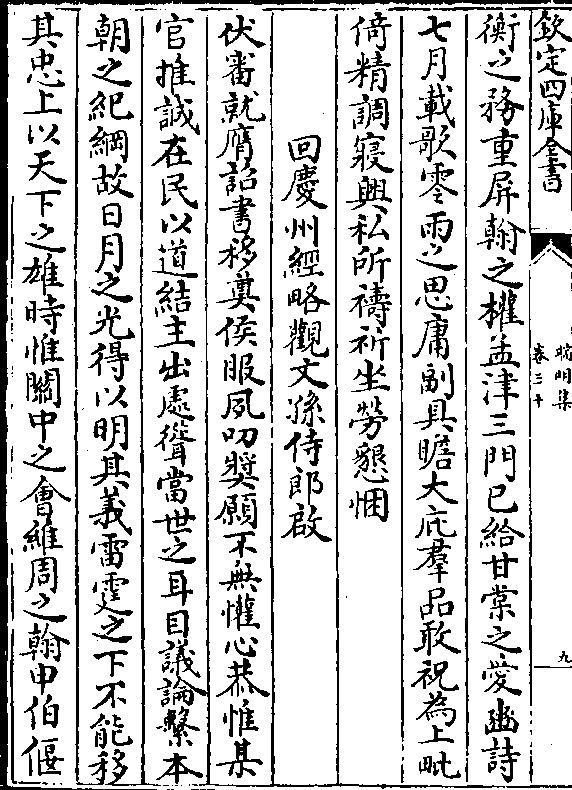 欽定四庫全書
皖明集
卷三十
九
衡之務重屏翰之權孟津三門已給甘棠之愛豳詩
七月載歌零雨之思庸副具瞻大庇羣品敢祝為上毗
倚精調寢興私所禱祈坐勞懇悃
回慶州經略觀文孫侍郎啟
伏審就膺詔書移奠侯服夙叨奬願不無懽心恭惟某
官推誠在民以道結主出處聳當世之耳目議論繫本
朝之紀綱故日月之光得以明其義雷霆之下不能移
其忠上以天下之雄時惟關中之會維周之翰申伯偃